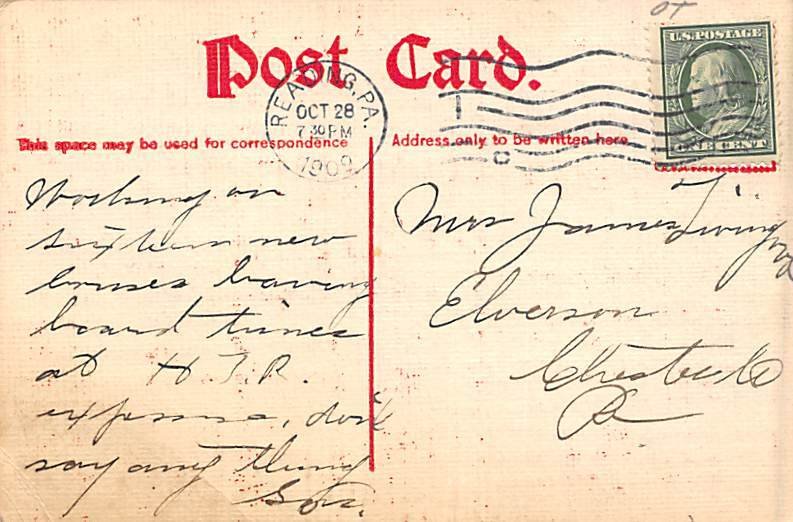 Post Card.
U.S. POSTAGE
ONE CENT
READING, PA.
OCT 28
7 30 PM
1909
This space may be used for correspondence
Address only to be written here
Working on
sixteen new
houses having
board times
at H. J. R.
expense, don't
say any thing
Geo.
Mrs James Livingood
Elverson
Chester Co
Pa